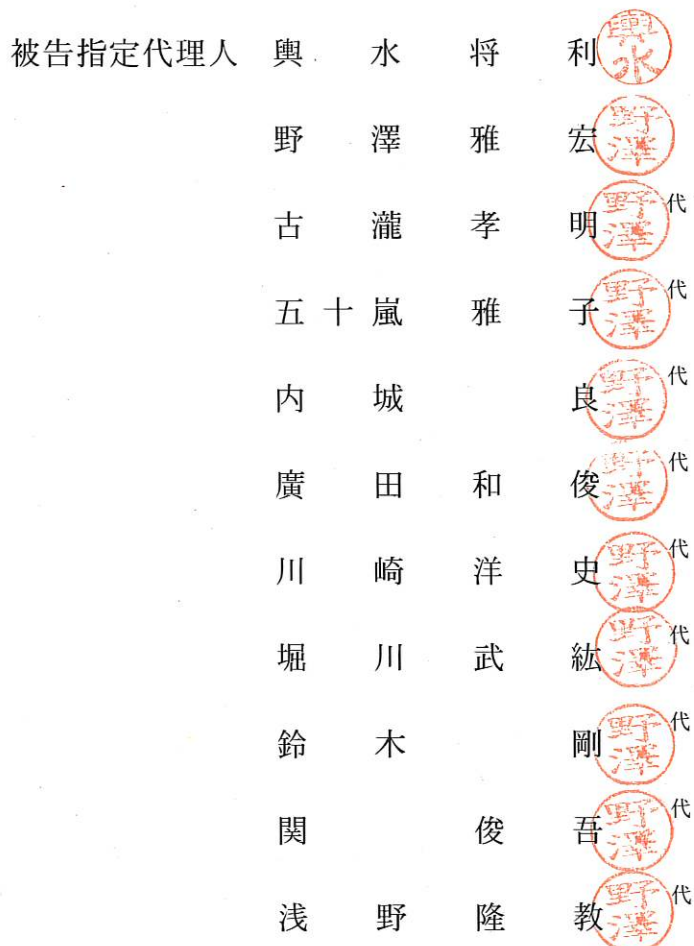 被告指定代理人 輿水将利 輿水
野澤雅宏 野澤
古瀧孝明 野澤 代
五十嵐雅子 野澤 代
内城良 野澤 代
廣田和俊 野澤 代
川崎洋史 野澤 代
堀川武紘 野澤 代
鈴木剛 野澤 代
関俊吾 野澤 代
浅野隆教 野澤 代